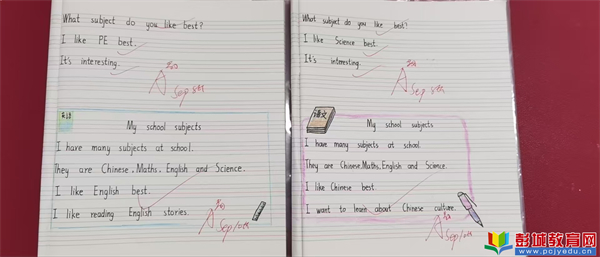 What subject do you like best?
I like PE best.
It's interesting.
A
Sep 8th
My school subjects
I have many subjects at school.
They are Chinese, Maths, English and Science.
I like English best.
I like reading English stories.
A
Sep 10th
What subject do you like best?
I like Science best.
It's interesting.
A
Sep 8th
语文
My school subjects
I have many subjects at school.
They are Chinese, Maths, English and Science.
I like Chinese best
I want to learn about Chinese culture.
A
Sep 10th
彭城教育网
www.pcjyedu.cn